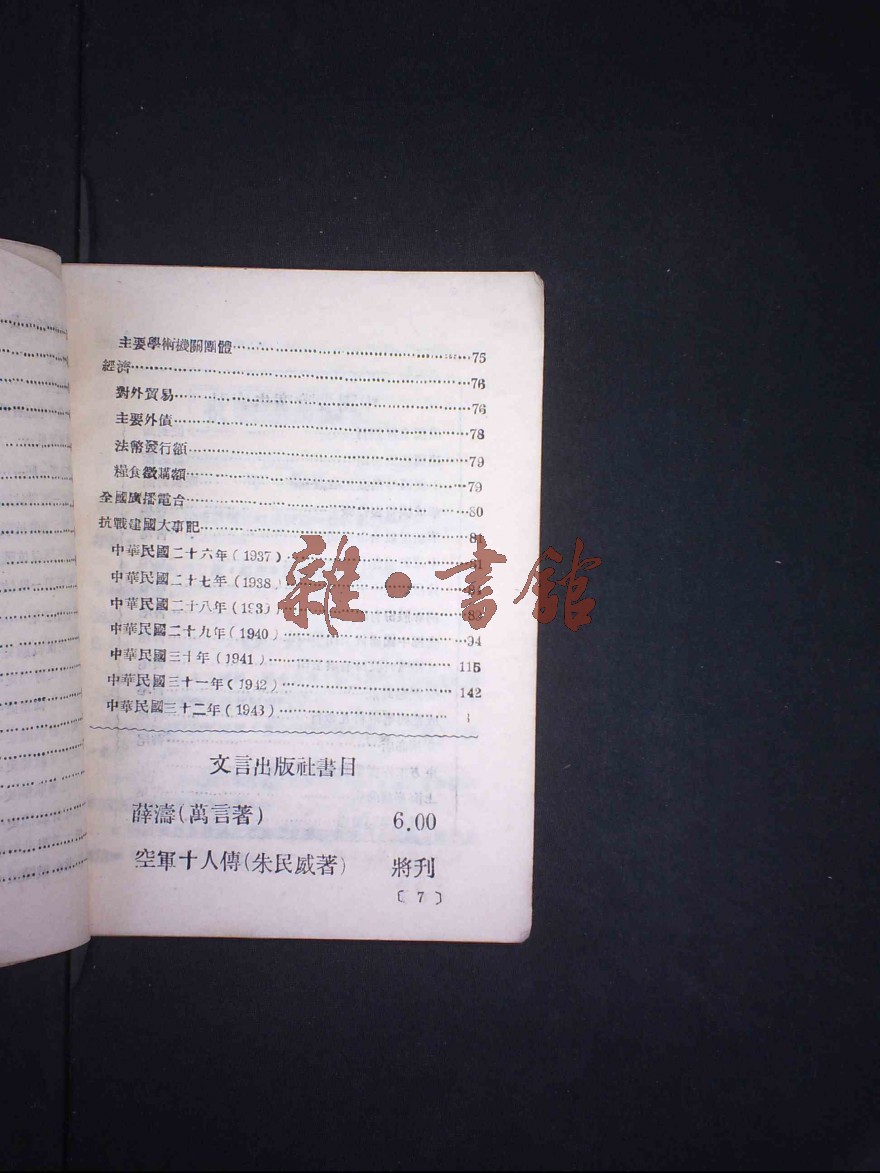 主要學術機關團體……75
經濟……76
對外貿易……76
主要外債……78
法幣發行額……79
糧食徵購額……79
全國廣播電台……80
抗戰建國大事記……81
中華民國二十六年(1937)……81
中華民國二十七年(1938)……
中華民國二十八年(193 )……
中華民國二十九年(1940)……94
中華民國三十年(1941)……115
中華民國三十一年(1942)……142
中華民國三十二年(1943)……
文言出版社書目
薛濤(萬言著) 6.00
空軍十人傳(朱民威著) 將刊
〔7〕
雜·書館